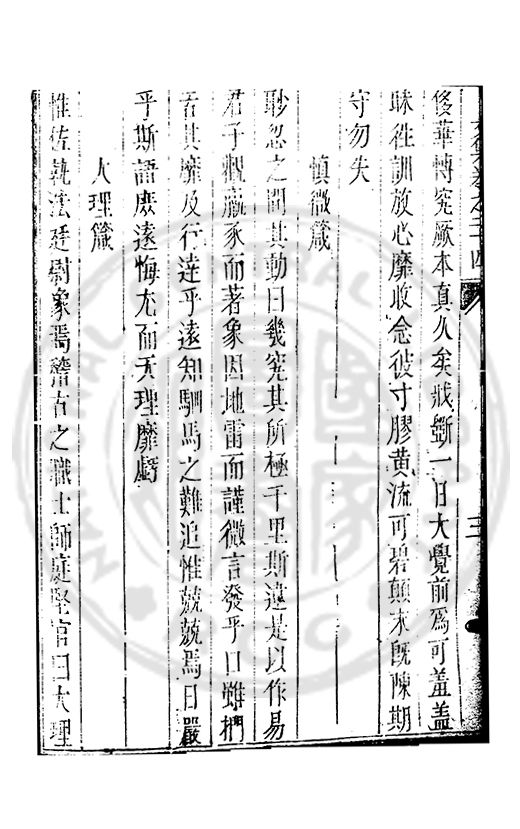 侈華轉究厥本真久矣戕斲一日大覺前爲可羞盍
昧徃訓放心靡收念彼寸膠黄流可碧顛末既陳期
守勿失
慎微箴
眇忽之間其動曰幾究其所極千里斯遠是以作易
君子觀羸豕而著象因地雷而謹微言發乎口雖捫
舌其靡及行逹乎遠知駟馬之難追惟兢兢焉日嚴
乎斯語庶遠悔尤而天理靡虧
大理箴
惟佐執法廷尉象焉稽古之職士師庭堅官曰大理
卷之二十四
三